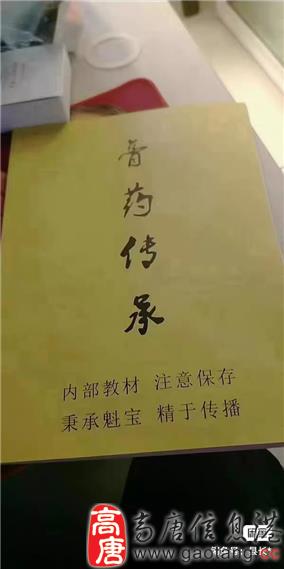 膏
药
传
承
内部教材 注意保存
秉承魁宝 精于传播
高唐
高唐信息港
www.gaotang.cc